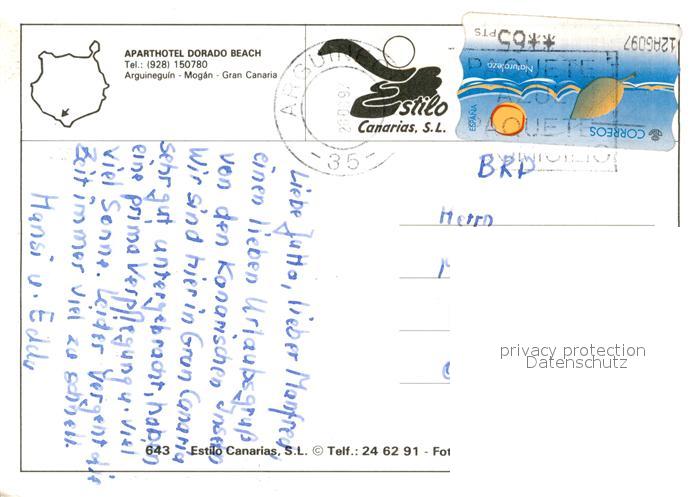 APARTHOTEL DORADO BEACH
Tel.: (928) 150780
Arguineguín - Mogán - Gran Canaria
Estilo
Canarias, S.L.
ARGUINEGUIN
-35-
12AG097
**65 PTS
Naturaleza
ESPAÑA
CORREOS
PAQUETE
AZUL
PAQUETE
DOMICILIO
BRD
Herrn
Liebe Jutta, lieber Manfred,
einen lieben Urlaubsgruß
von den Kanarischen Inseln
Wir sind hier in Gran Canaria
sehr gut untergebracht, haben
eine prima Verpflegung u. viel
viel Sonne. Leider vergeht die
Zeit immer viel zu schnell.
Hansi u. Eddy
643 Estilo Canarias, S.L. © Telf.: 24 62 91 - Fot
privacy protection
Datenschutz